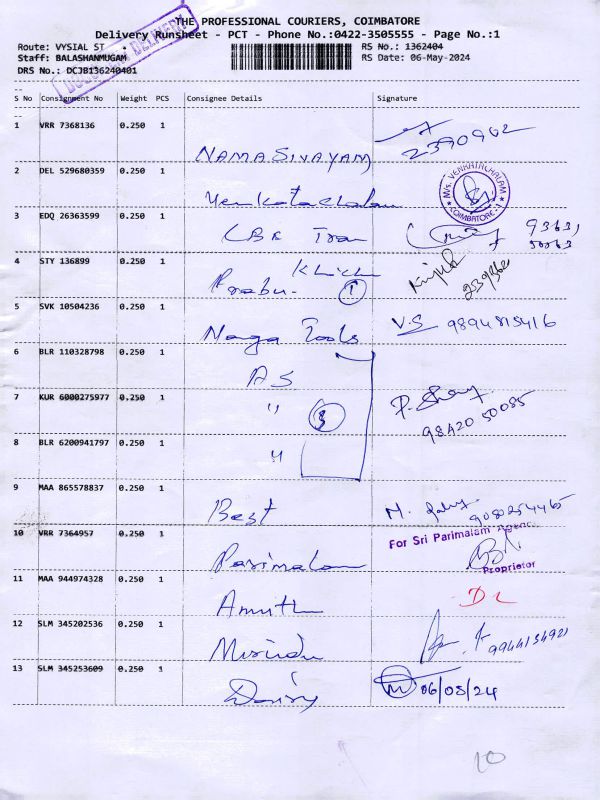 THE PROFESSIONAL COURIERS, COIMBATORE
Delivery Runsheet - PCT - Phone No.:0422-3505555 - Page No.:1
Route: VYSIAL ST
RS No.: 1362404
Staff: BALASHANMUGAM
RS Date: 06-May-2024
DRS No.: DCJB136240401
S No Consignment No Weight PCS Consignee Details Signature
1 VRR 7368136 0.250 1
NAMASIVAYAM 2390962
2 DEL 529680359 0.250 1
M/s. VENKATACHALAM
COIMBATORE-1
Venkatachalam
3 EDQ 26363599 0.250 1
4 STY 136899 0.250 1
Prabu. 1
5 SVK 10504236 0.250 1
Naga Tools V.S 9894815416
6 BLR 110328798 0.250 1
AS
7 KUR 6000275977 0.250 1
" 3
98420 50085
8 BLR 6200941797 0.250 1
"
9 MAA 865578837 0.250 1
Best M.
10 VRR 7364957 0.250 1
For Sri Parimalam Agency
Parimalam
Proprietor
11 MAA 944974328 0.250 1
Amrith
12 SLM 345202536 0.250 1
13 SLM 345253609 0.250 1
06/05/24
10